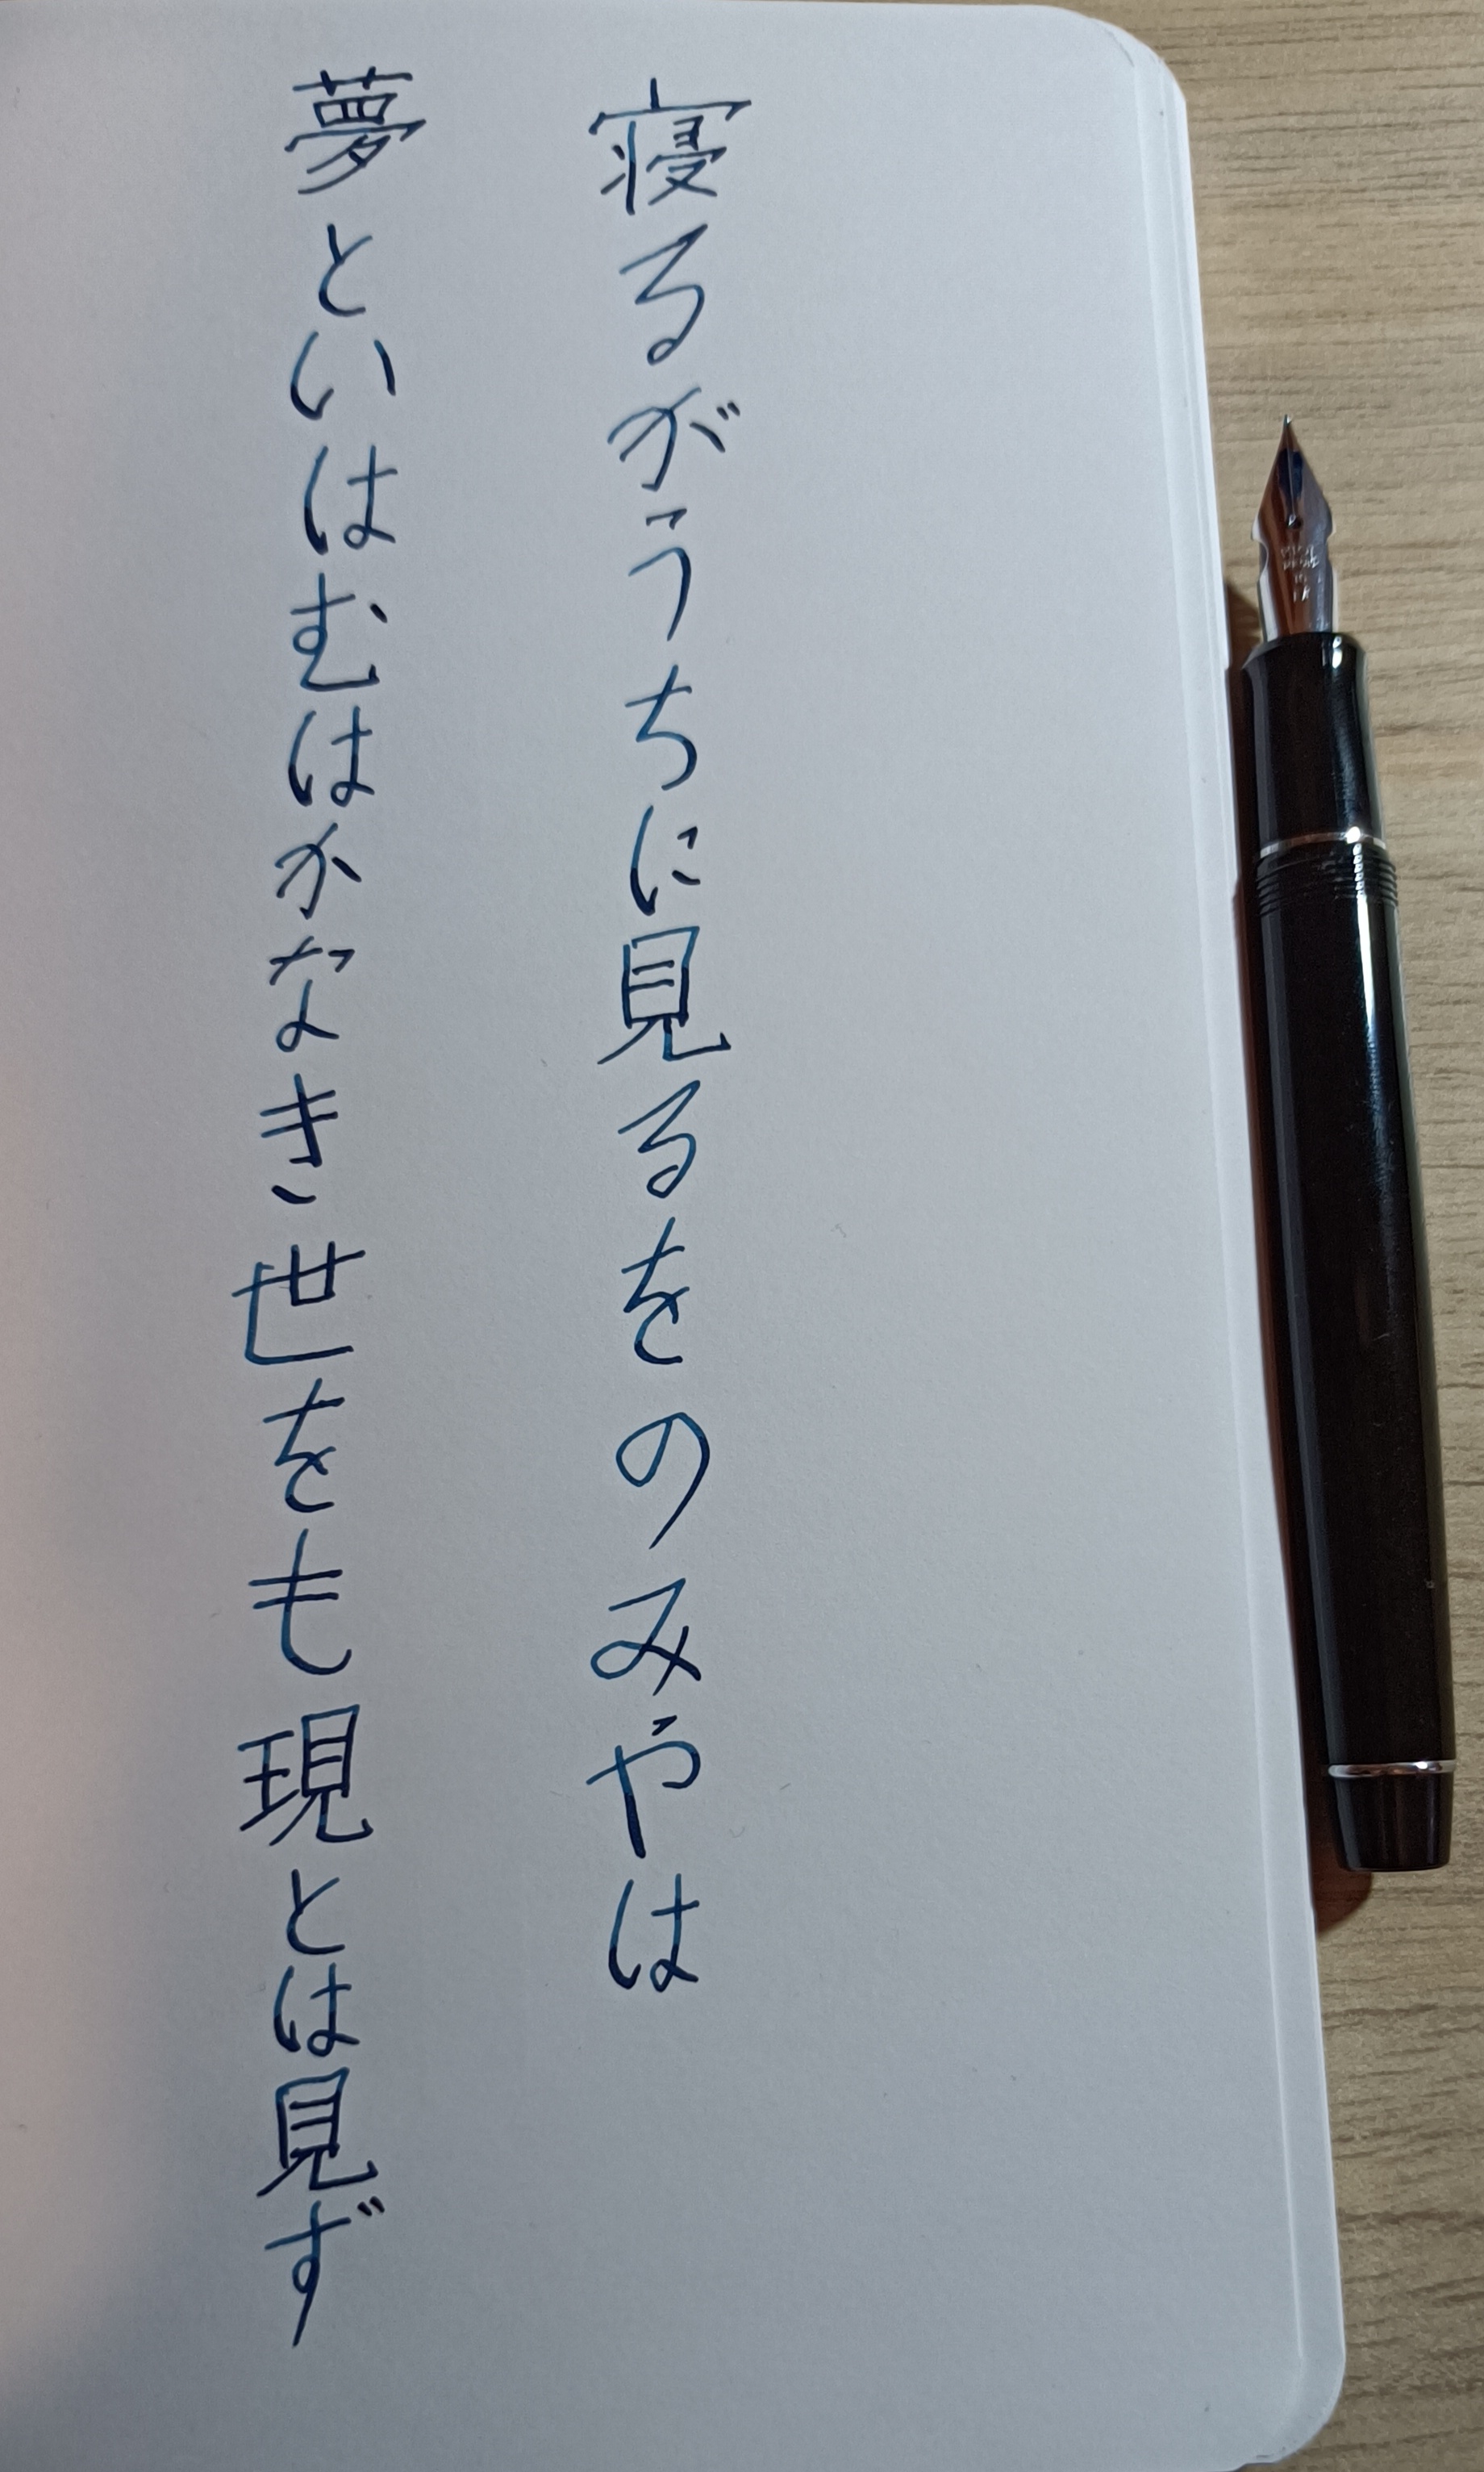 寝るがうちに見るをのみやは
夢といはむはかなき世をも現とは見ず